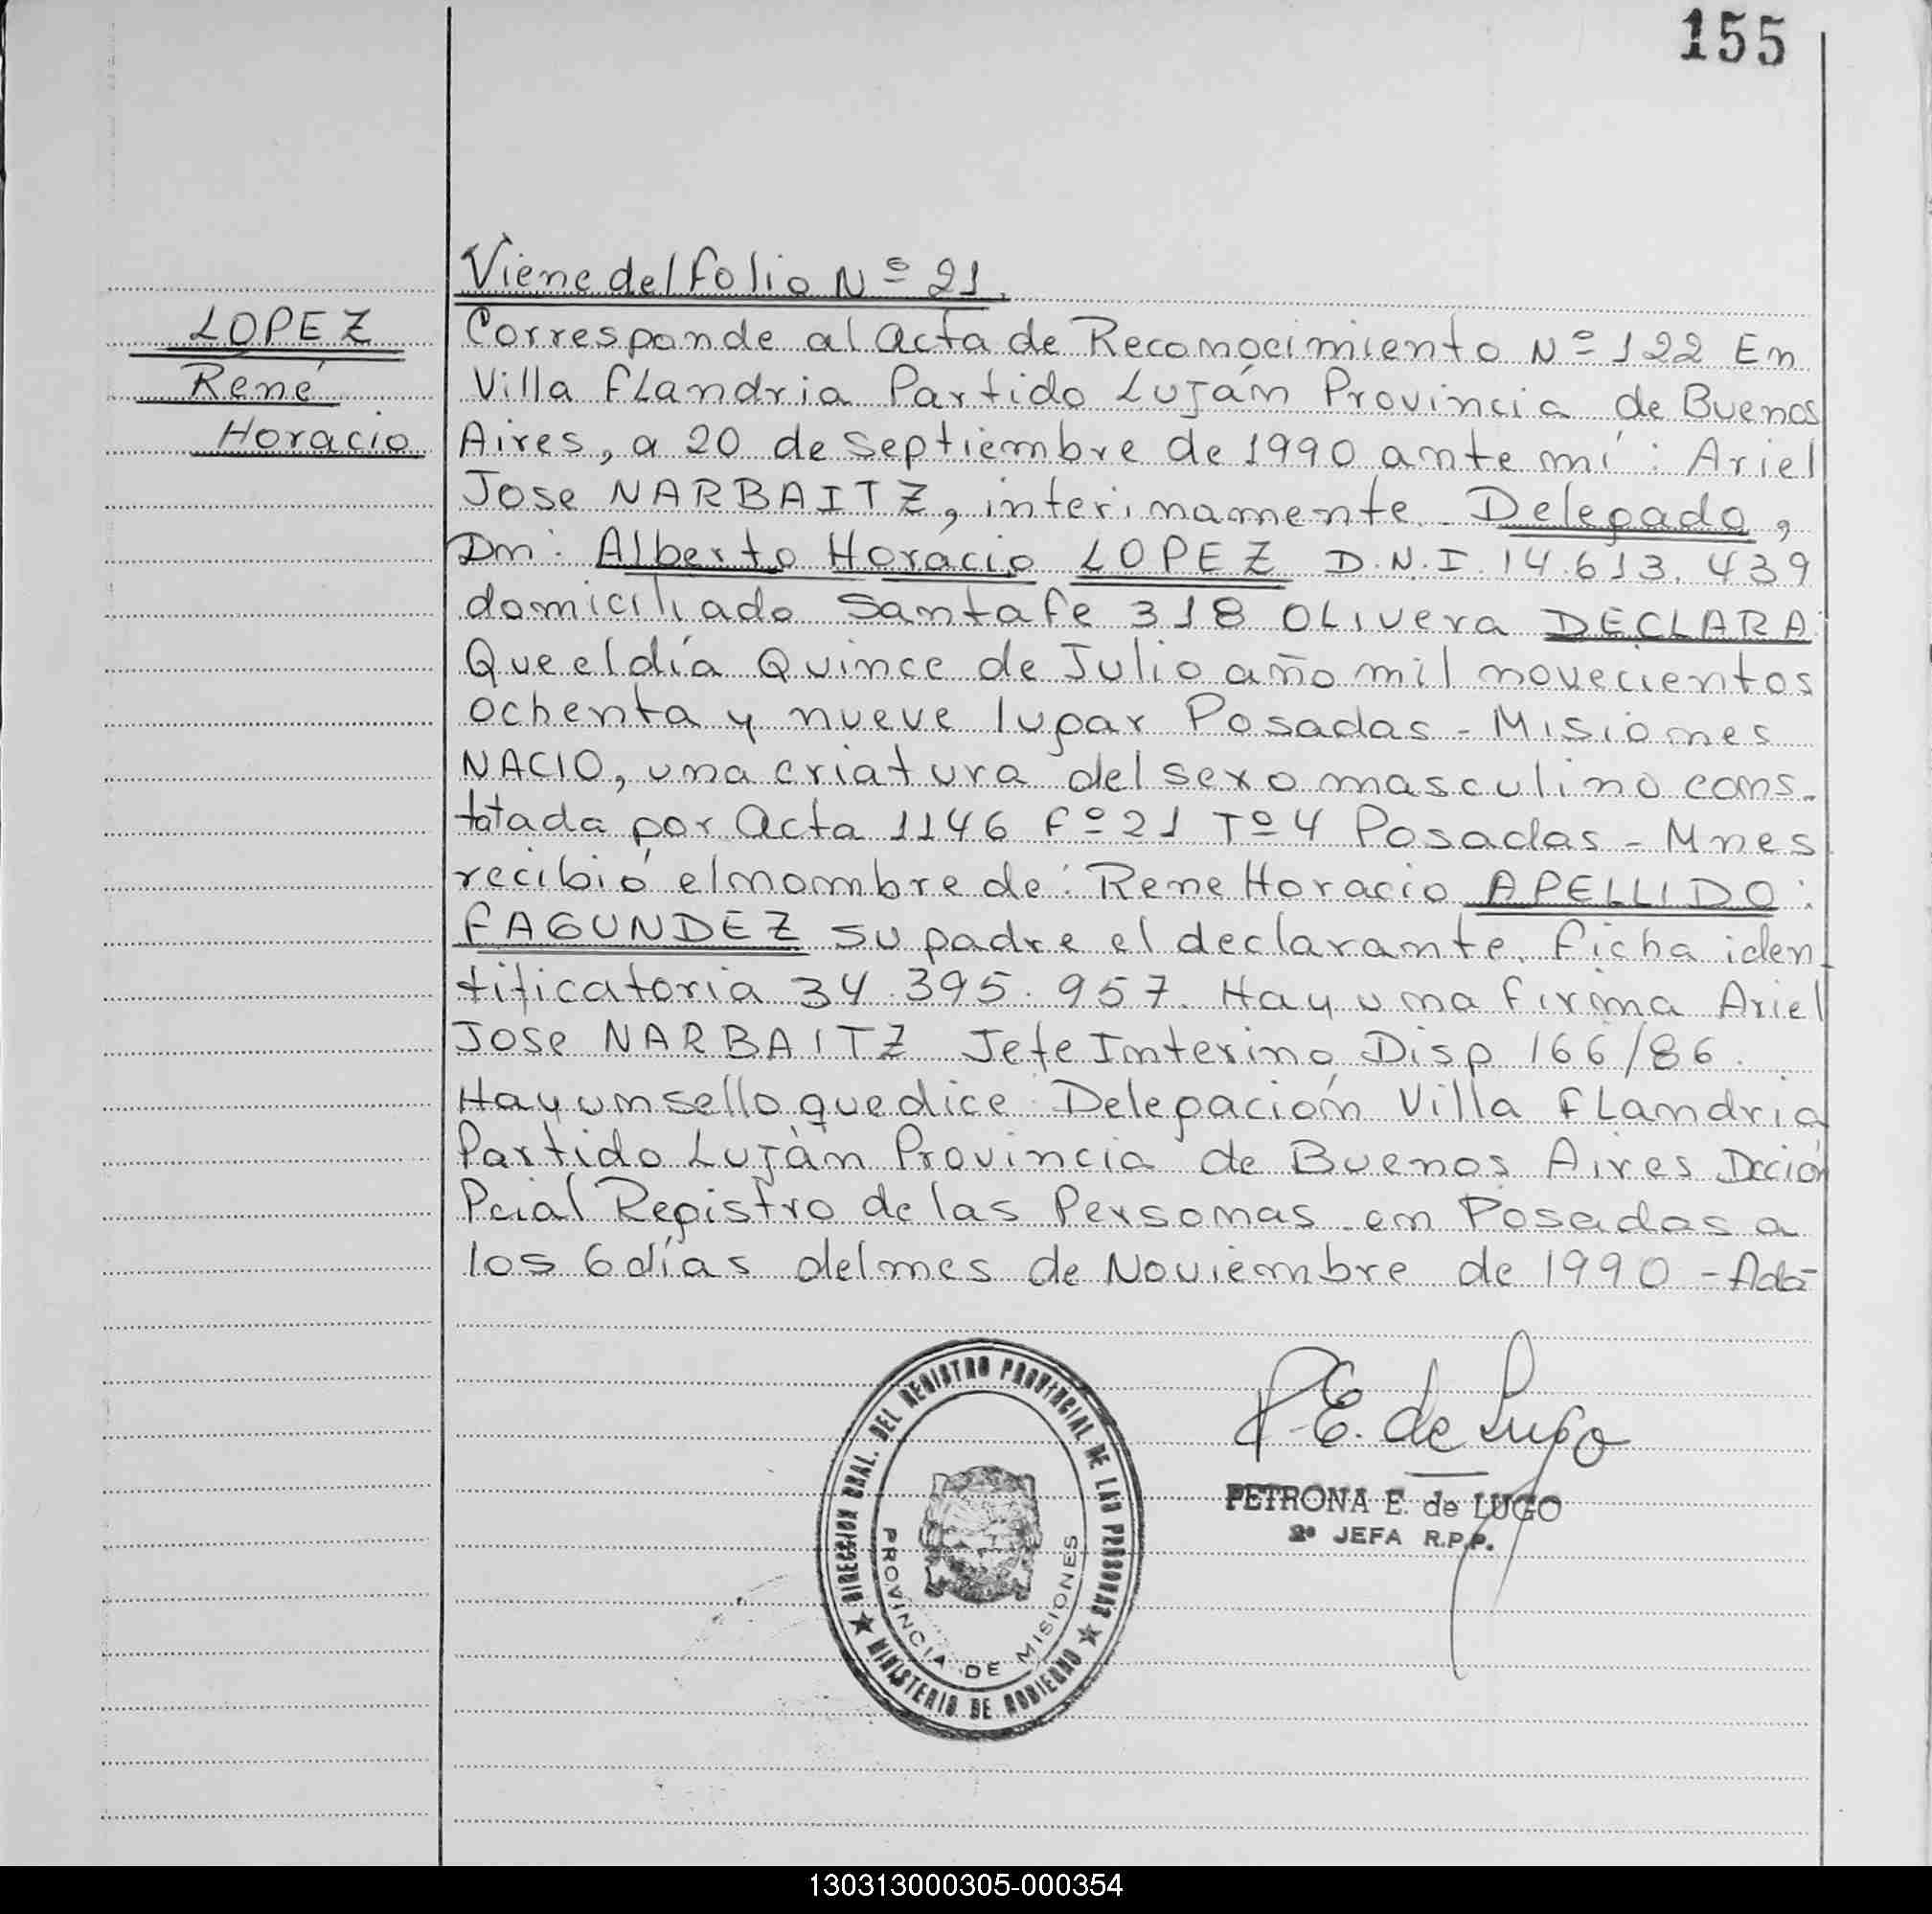 155
Viene del folio Nº 21.
LOPEZ
René
Horacio
Corresponde al acta de Reconocimiento Nº 122 En
Villa Flandria Partido Luján Provincia de Buenos
Aires, a 20 de septiembre de 1990 ante mí: Ariel
Jose NARBAITZ, interinamente Delegado,
Dn: Alberto Horacio LOPEZ D.N.I. 14.613.439
domiciliado Santa fe 318 Olivera DECLARA:
Que el día Quince de Julio año mil novecientos
ochenta y nueve lugar Posadas - Misiones
NACIO, una criatura del sexo masculino cons-
tatada por acta 1146 Fº 21 Tº 4 Posadas - Mnes
recibió el nombre de: Rene Horacio APELLIDO:
FAGUNDEZ su padre el declarante. ficha iden-
tificatoria 34.395.957. Hay una firma Ariel
Jose NARBAITZ Jefe Interino Disp 166/86.
Hay un sello que dice: Delegación Villa Flandria
Partido Luján Provincia de Buenos Aires Dcción
Pcial Registro de las Personas en Posadas a
los 6 días del mes de Noviembre de 1990 -
P.E. de Lugo
PETRONA E. de LUGO
2ª JEFA R.P.P.
DIRECCION GRAL. DEL REGISTRO PROVINCIAL DE LAS PERSONAS
MINISTERIO DE GOBIERNO
PROVINCIA DE MISIONES
130313000305-000354